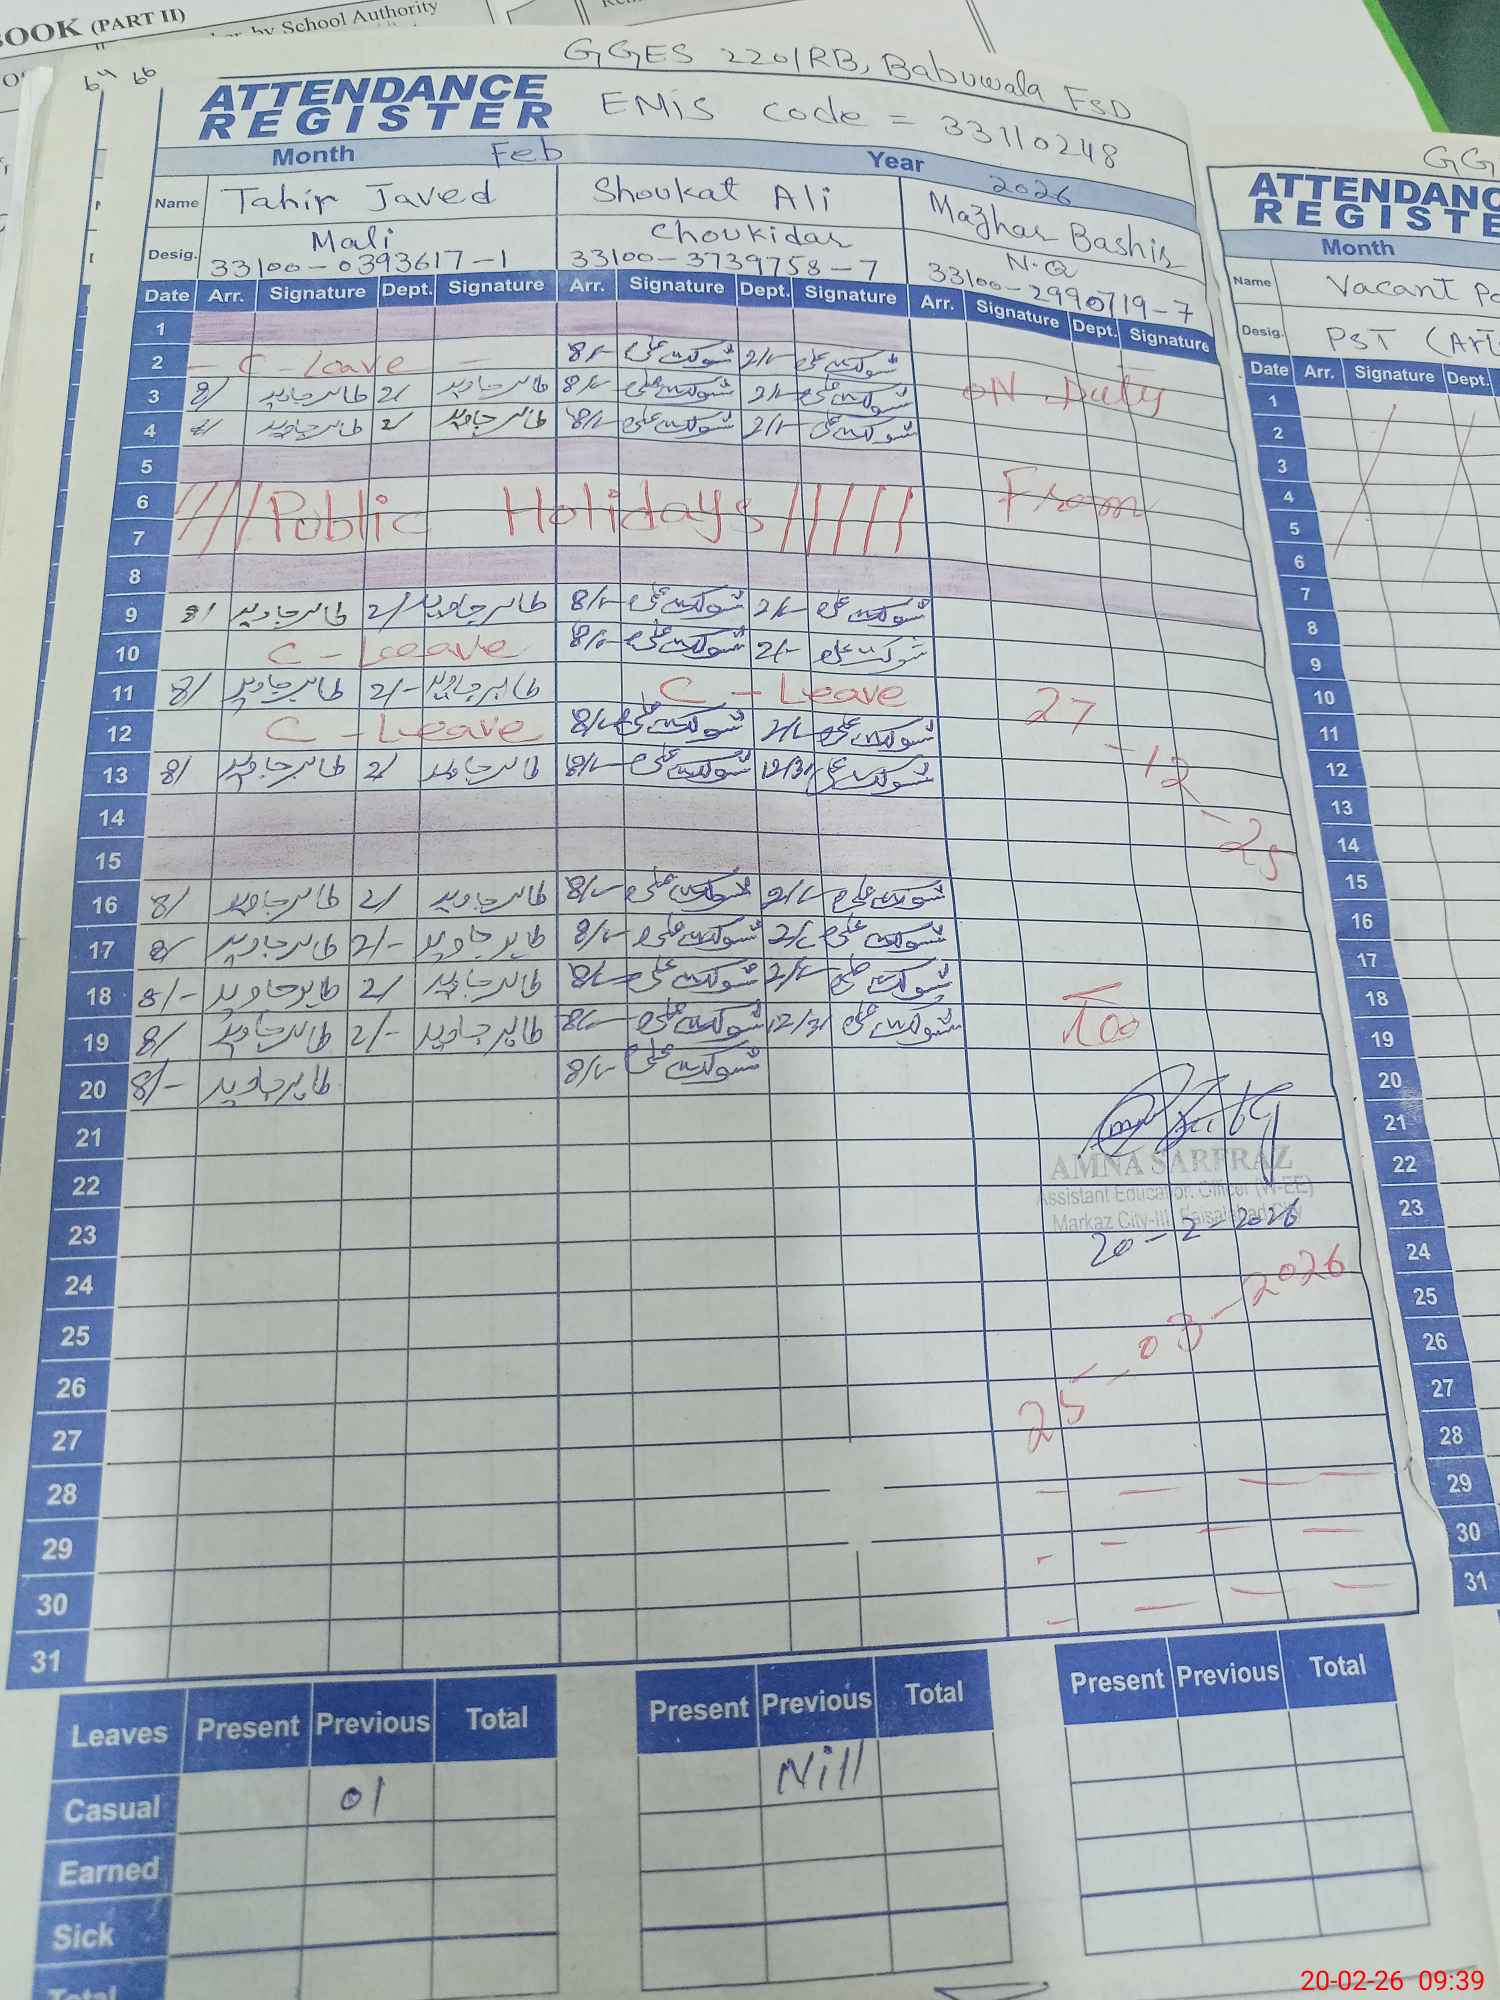 BOOK (PART II)
by School Authority
64 66
GGES 220/RB, Babuwala FSD
ATTENDANCE
REGISTER
EMIS code = 33110248
Month Feb Year 2026
Name Tahir Javed Shoukat Ali Mazhar Bashir
Desig. Mali Choukidar N.Q
33100-0393617-1 33100-3739758-7 33100-2990719-7
Date Arr. Signature Dept. Signature Arr. Signature Dept. Signature Arr. Signature Dept. Signature
1
2 - C - Leave 8/- شوکت علی 2/- شوکت علی
3 8/ طاہر جاوید 2/ طاہر جاوید 8/- شوکت علی 2/- شوکت علی ON Duty
4 8/ طاہر جاوید 2/ طاہر جاوید 8/- شوکت علی 2/- شوکت علی
5
6 Public Holidays From
7
8
9 8/ طاہر جاوید 2/ طاہر جاوید 8/- شوکت علی 2/- شوکت علی
10 C - Leave 8/- شوکت علی 2/- شوکت علی
11 8/ طاہر جاوید 2/- طاہر جاوید C - Leave 27
12 C - Leave 8/- شوکت علی 2/- شوکت علی - 12
13 8/ طاہر جاوید 2/ طاہر جاوید 8/- شوکت علی 12/31 شوکت علی
14 - 25
15
16 8/ طاہر جاوید 2/ طاہر جاوید 8/- شوکت علی 2/- شوکت علی
17 8/ طاہر جاوید 2/- طاہر جاوید 8/- شوکت علی 2/- شوکت علی
18 8/- طاہر جاوید 2/ طاہر جاوید 8/- شوکت علی 2/- شوکت علی
19 8/ طاہر جاوید 2/- طاہر جاوید 8/- شوکت علی 12/31 شوکت علی
20 8/- طاہر جاوید 8/- شوکت علی
21
22 AMNA SARFRAZ
Assistant Education Officer (W-EE)
23 Markaz City-III, Faisalabad City
20-2-2026
24
25
26 25-03-2026
27
28
29
30
31
Leaves Present Previous Total Present Previous Total Present Previous Total
Casual 01 Nill
Earned
Sick
Total
GG
ATTENDANC
REGISTE
Month
Name Vacant Po
Desig. PST (Art
Date Arr. Signature Dept.
1
2
3
4
5
6
7
8
9
10
11
12
13
14
15
16
17
18
19
20
21
22
23
24
25
26
27
28
29
30
31
20-02-26 09:39